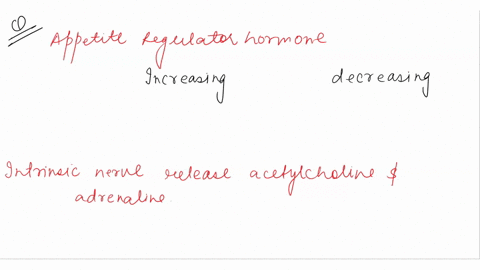 Q
Appetite Regulator hormone
Increasing decreasing
Intrinsic nerve release acetylcholine &
adrenaline.